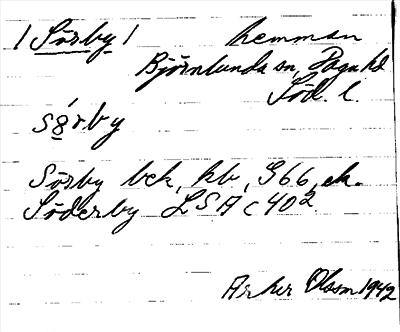 / Sörby / hemman
Björnlunda sn, Daga hd
Söd. l.
sö́rby
Sörby bek, kb, G66, ek.
Söderby LSA C 40²
Olsson 1942